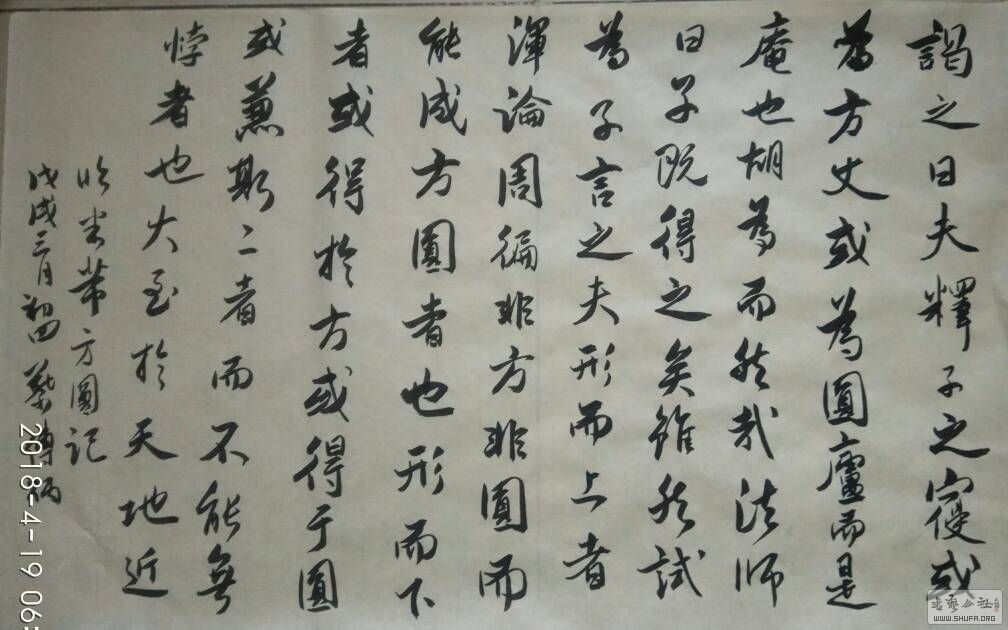 謁之曰夫釋子之寢或
為方丈或為圓廬而是
庵也胡為而然哉法師
曰子既得之矣雖然試
為子言之夫形而上者
渾論周徧非方非圓而
能成方圓者也形而下
者或得於方或得于圓
或兼斯二者而不能無
悖者也大至於天地近
臨米芾方圓記
戊戌三月初四
2018-4-19 06:
书艺公社
WWW.SHUFA.ORG